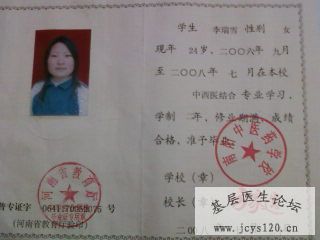 学生 李瑞雪 性别 女
现年 24岁,二〇〇六 年 九 月
至 二〇〇八 年 七 月在本校
中西医结合 专业学习,
学制 二 年,修业期满,成绩
合格,准予毕业。
学校(章)
校长(章)
二〇〇八
河南省教育厅
普专证字
号
(河南省教育厅验印)
中医药学校
基层医生论坛
www.jcys120.cn